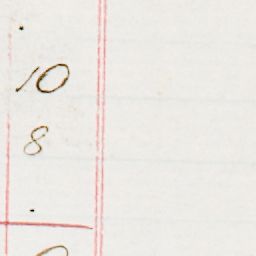 10
8